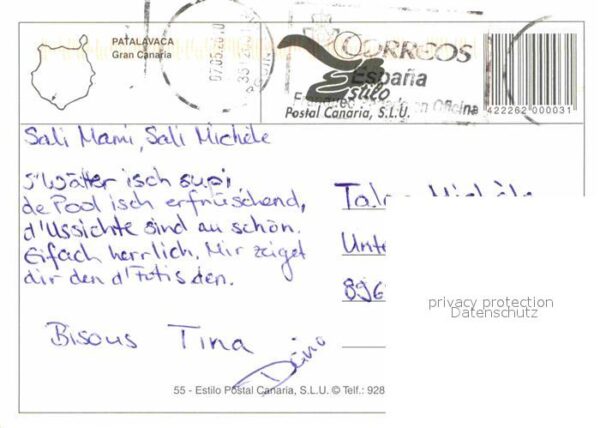 PATALAVACA
Gran Canaria
07.05.2010
CORREOS
España
Estilo
Postal Canaria, S.L.U.
en Oficina
422262 000031
Sali Mami, Sali Michèle
s'Wätter isch supi,
de Pool isch erfrüschend,
d'Ussichte sind au schön.
Eifach herrlich. Mir zeiget
dir den d'Fotis den.
Bisous Tina
Dino
Unte
896
privacy protection
Datenschutz
55 - Estilo Postal Canaria, S.L.U. © Telf.: 928